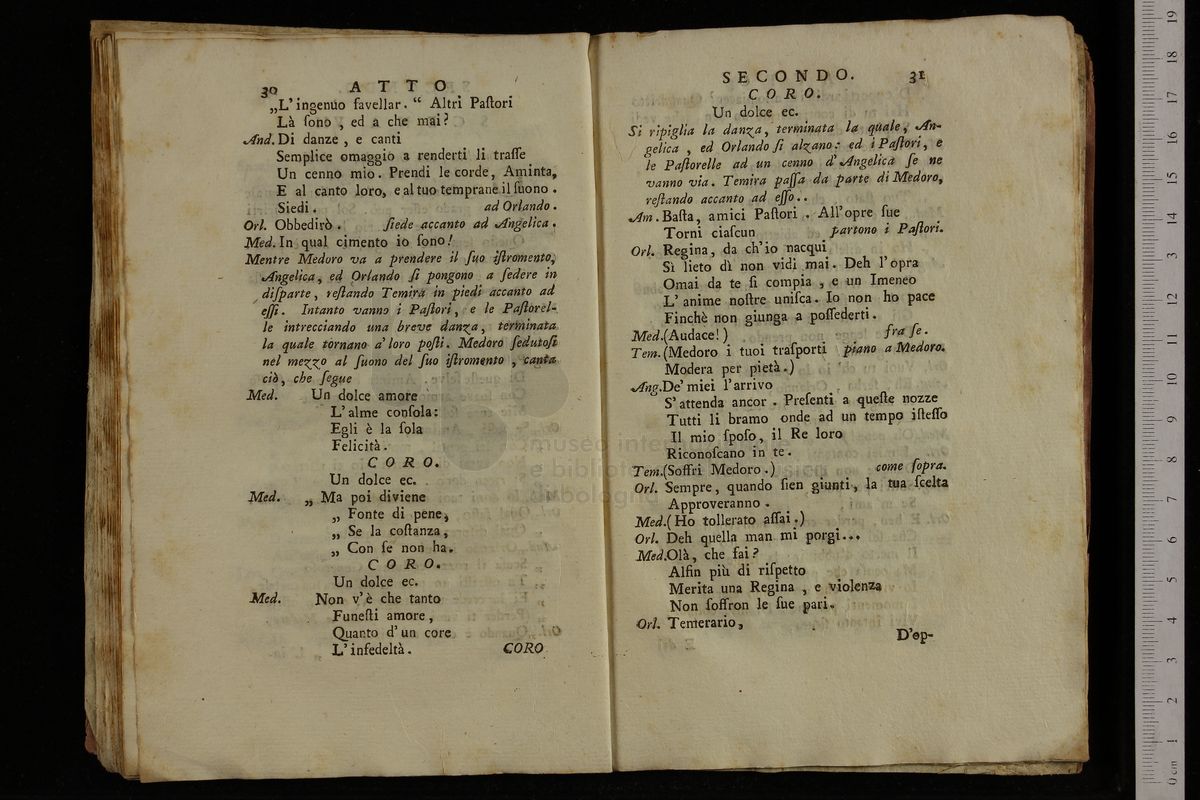 30 ATTO
„L' ingenuo favellar. “ Altri Paſtori
Là ſono , ed a che mai?
And. Di danze , e canti
Semplice omaggio a renderti li traſſe
Un cenno mio. Prendi le corde, Aminta,
E al canto loro, e al tuo temprane il ſuono .
Siedi. ad Orlando.
Orl. Obbedirò. ſiede accanto ad Angelica.
Med. In qual cimento io ſono!
Mentre Medoro va a prendere il ſuo iſtromento,
Angelica, ed Orlando ſi pongono a ſedere in
diſparte, reſtando Temira in piedi accanto ad
eſſi. Intanto vanno i Paſtori, e le Paſtorel-
le intrecciando una breve danza, terminata
la quale tornano a' loro poſti. Medoro ſedutoſi
nel mezzo al ſuono del ſuo iſtromento , canta
ciò, che ſegue
Med. Un dolce amore
L' alme conſola:
Egli è la ſola
Felicità.
CORO.
Un dolce ec.
Med. „ Ma poi diviene
„ Fonte di pene,
„ Se la coſtanza,
„ Con ſe non ha.
CORO.
Un dolce ec.
Med. Non v'è che tanto
Funeſti amore,
Quanto d' un core
L' infedeltà. CORO
SECONDO. 31
CORO.
Un dolce ec.
Si ripiglia la danza, terminata la quale, An-
gelica , ed Orlando ſi alzano: ed i Paſtori, e
le Paſtorelle ad un cenno d' Angelica ſe ne
vanno via. Temira paſſa da parte di Medoro,
reſtando accanto ad eſſo..
Am. Baſta, amici Paſtori . All' opre ſue
Torni ciaſcun partono i Paſtori.
Orl. Regina, da ch'io nacqui
Sì lieto dì non vidi mai. Deh l' opra
Omai da te ſi compia , e un Imeneo
L' anime noſtre uniſca. Io non ho pace
Finchè non giunga a poſſederti.
Med. (Audace!) fra ſe.
Tem. (Medoro i tuoi traſporti piano a Medoro.
Modera per pietà.)
Ang. De' miei l'arrivo
S' attenda ancor . Preſenti a queſte nozze
Tutti li bramo onde ad un tempo iſteſſo
Il mio ſpoſo, il Re loro
Riconoſcano in te.
Tem. (Soffri Medoro.) come ſopra.
Orl. Sempre, quando ſien giunti, la tua ſcelta
Approveranno.
Med. (Ho tollerato aſſai.)
Orl. Deh quella man mi porgi...
Med. Olà, che fai?
Alfin più di riſpetto
Merita una Regina , e violenza
Non ſoffron le ſue pari.
Orl. Temerario,
D'op-
museo inter
e bibliote
di bologna
0 cm 1 2 3 4 5 6 7 8 9 10 11 12 13 14 15 16 17 18 19